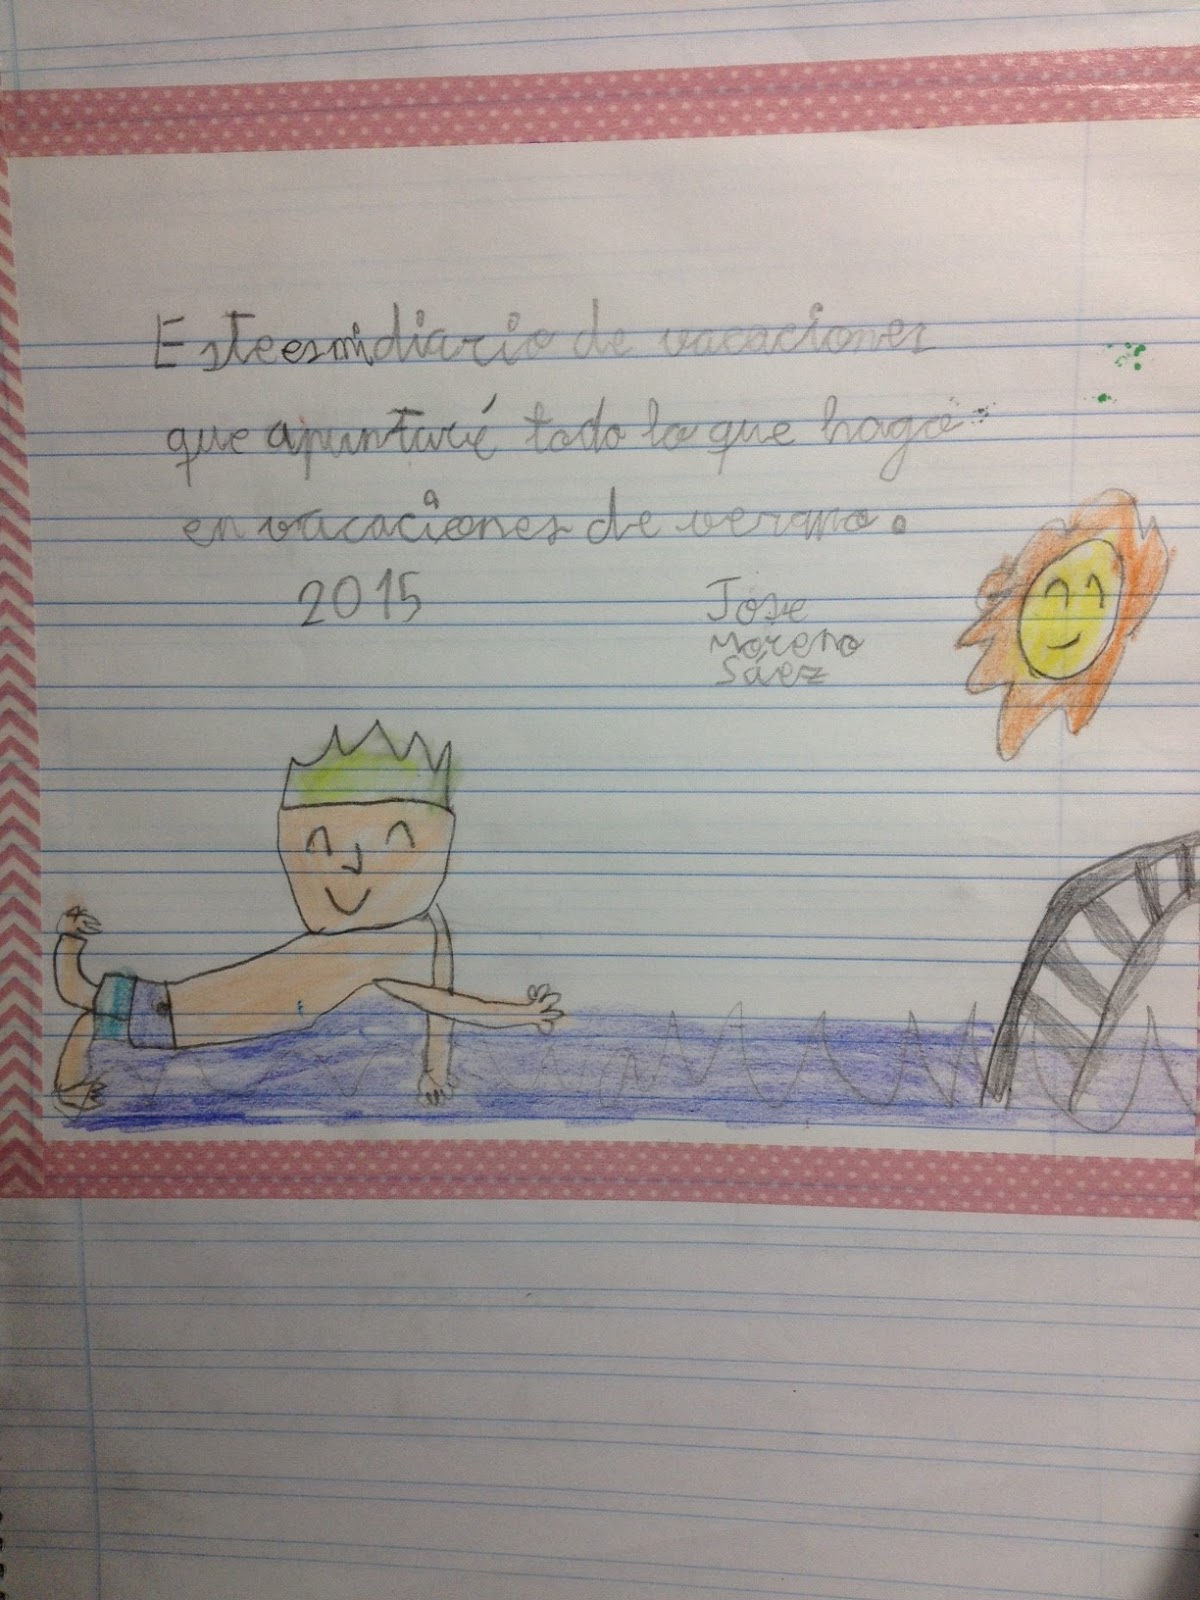 Este es mi diario de vacaciones
que apuntaré todo lo que haga
en vacaciones de verano.
2015
Jose
Moreno
Sáez